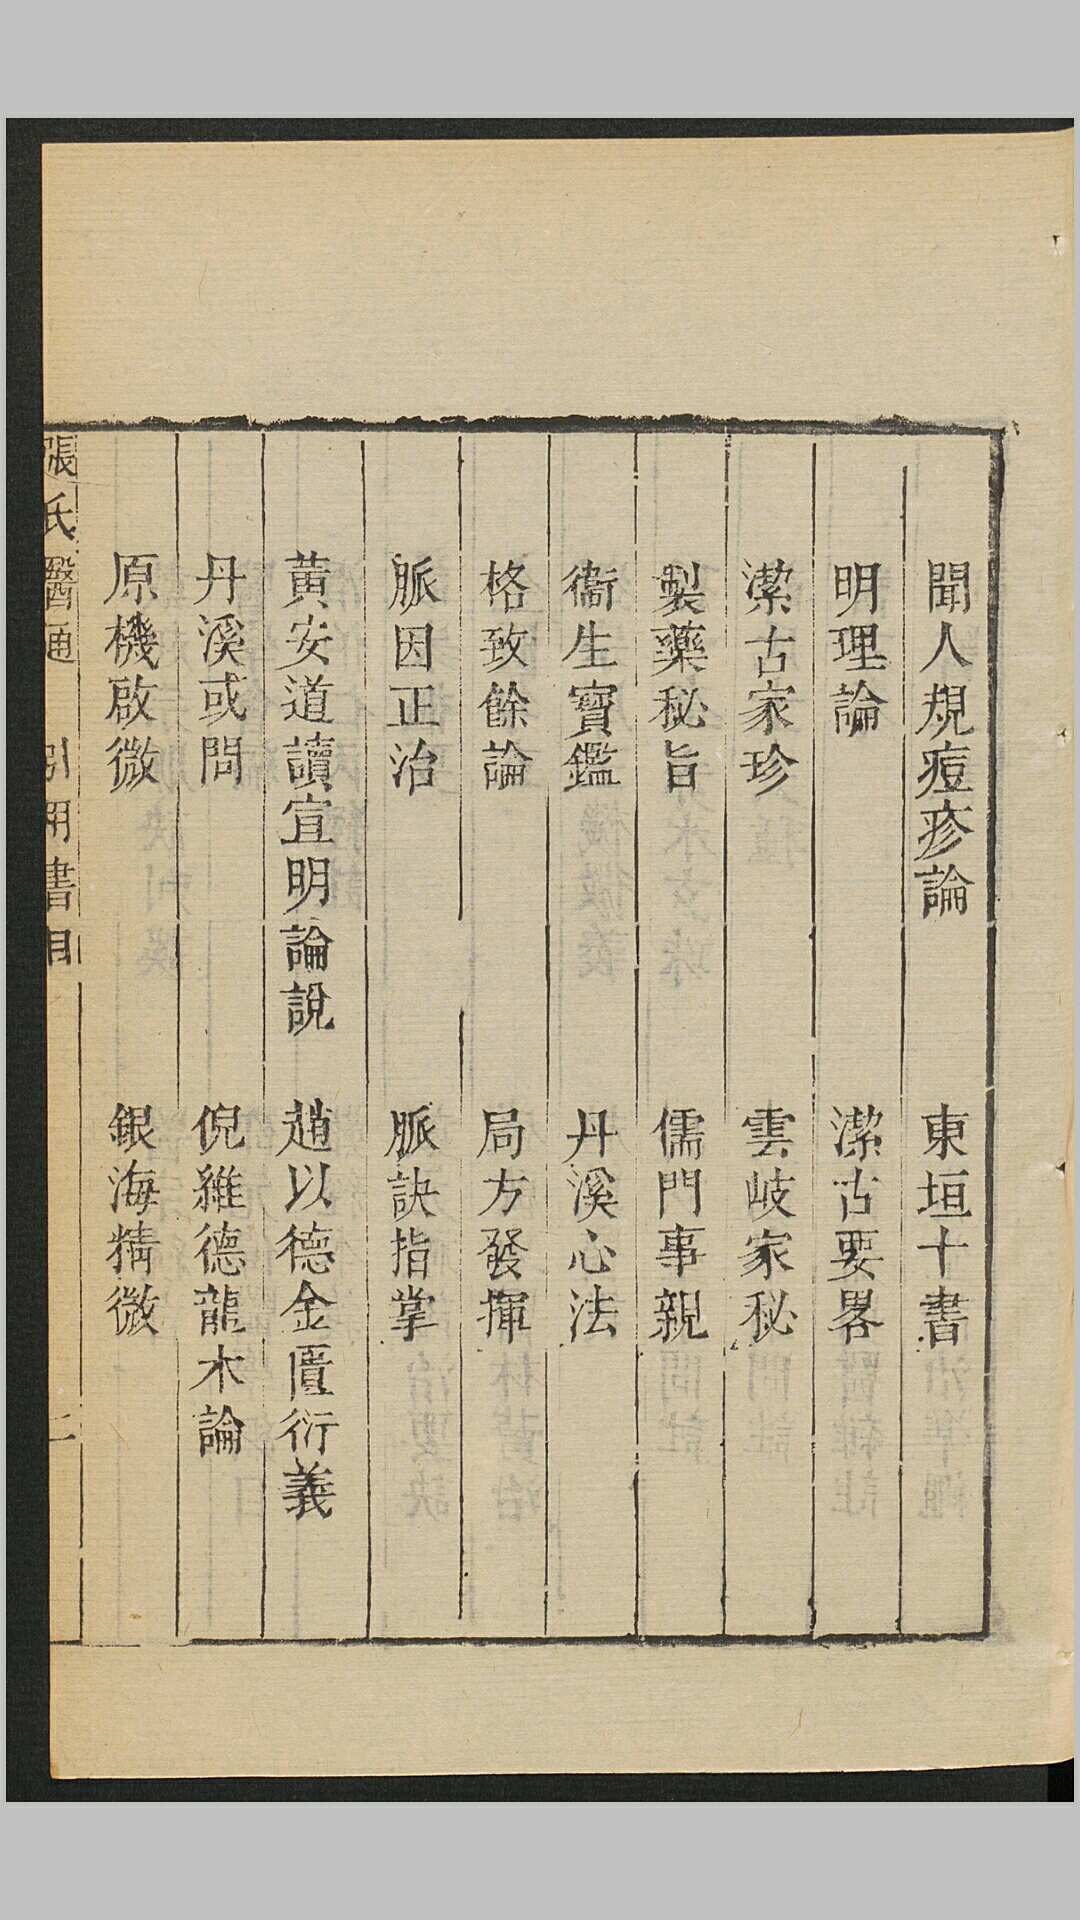 聞人規痘疹論　東垣十書
明理論　潔古要畧
潔古家珍　雲岐家秘
製藥秘旨　儒門事親
衞生寶鑑　丹溪心法
格致餘論　局方發揮
脈因正治　脈訣指掌
黃安道讀宣明論說　趙以德金匱衍義
丹溪或問　倪維德龍木論
原機啟微　銀海精微
張氏醫通　引用書目　二